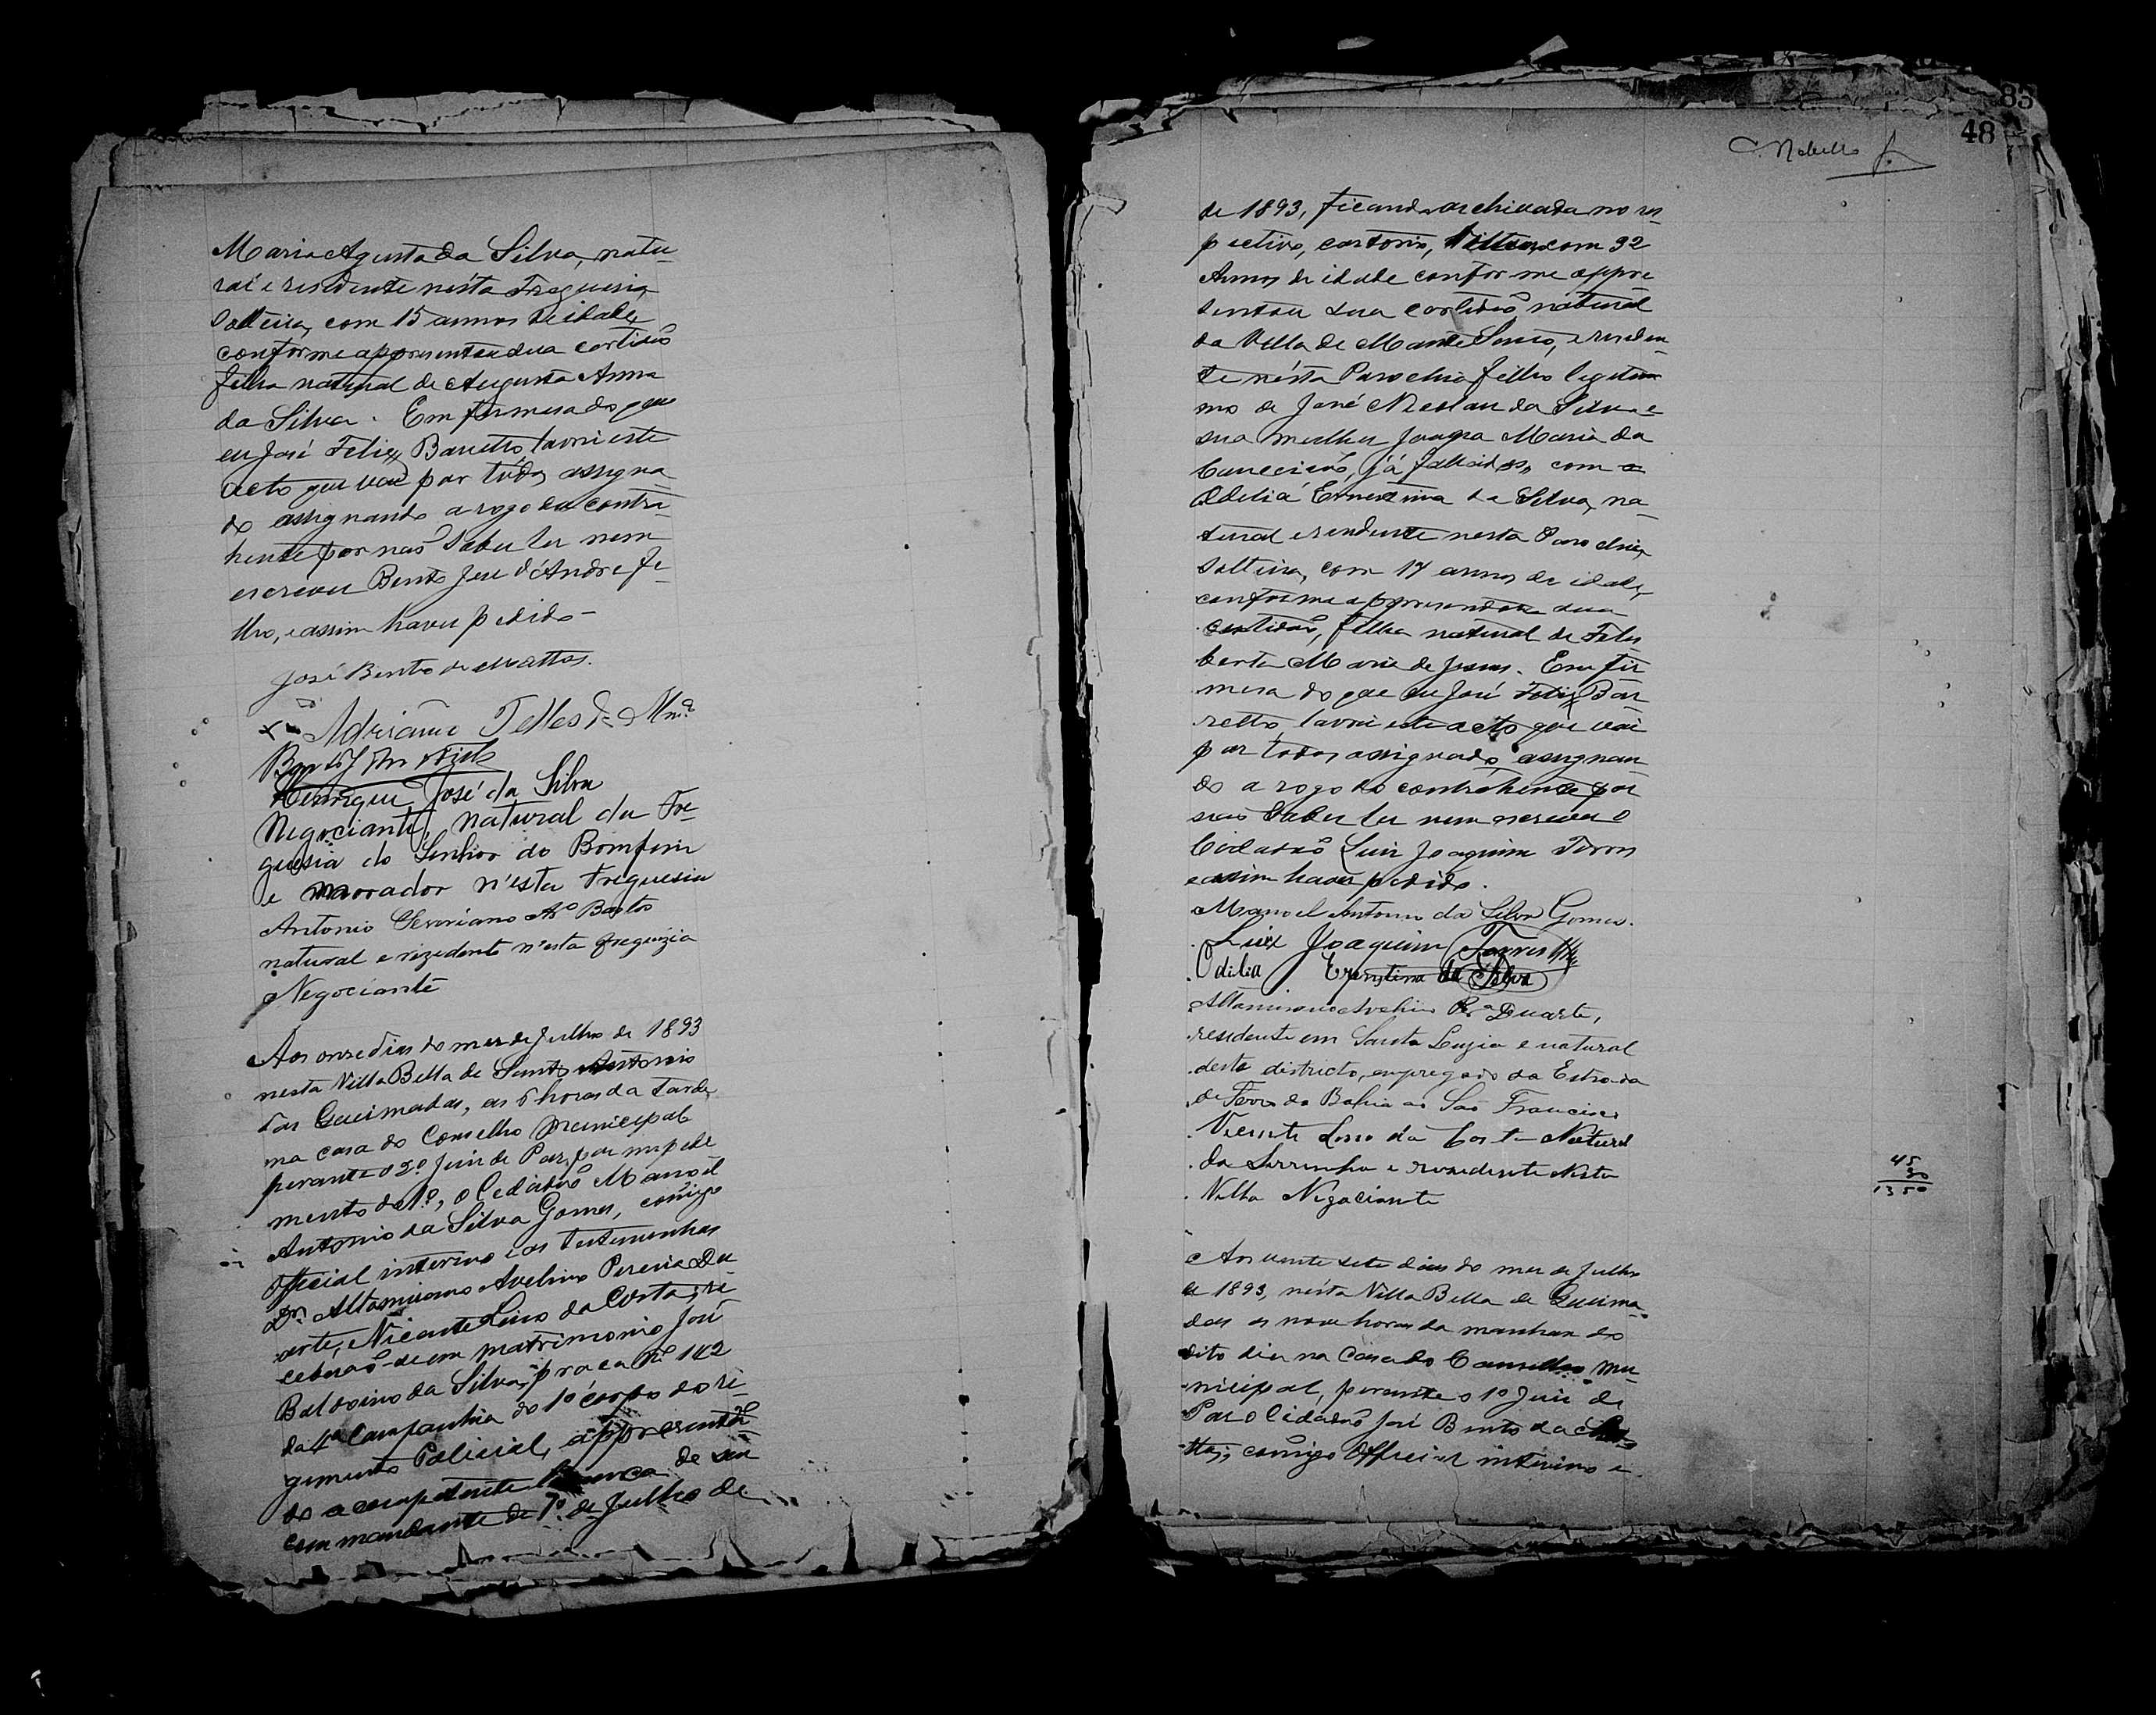 Maria Agusta da Silva, natu-
ral e residente nésta Freguesia,
Solteira, com 15 annos de idade,
conforme appresentou sua certidão
filha natural de Augusta Anna
da Silva. Em firmesa do que
eu José Felix Barretto, lavrei este
acto que vai por todos assigna-
do assignando a rogo da contra-
hente por não saber ler nem
escrever Bento José d'Andre fi-
lho, e assim haver pedido –
José Bento de Mattos.
Adriano Telles de
Henrique José da Silva
Negociante, natural da Fre-
guesia do Senhor do Bomfim
e morador n'esta Freguesia
Antonio Severiano Bastos
natural e rezidente n'esta freguizia
Negociante
Aos onze dias do mes de Julho de 1893
nesta Villa Bella de Santo Antonio
das Queimadas, as 5 horas da tarde,
na casa do Conselho Municipal
perante o 2º Juiz de Paz, por impede-
mento do 1º, o Cidadão Manoel
Antonio da Silva Gomes, comigo
official interino e as testemunhas
Dr. Altamirano Avelino Pereira Du-
arte, Vicente Lino da Costa, re-
ceberão-se em matrimonio José
Baldoino da Silva, praca nº 142
da 4ª Companhia do 1º corpo do re-
gimento Policial, appresentan-
do a competente licença de seu
commandante de 7 de Julho de
83
48
de 1893, ficando archivada no res-
pectivo, cartorio, com 32
Annos de idade conforme appre-
sentou sua certidão natural
da Villa de Monte Santo, e residen-
te nésta Parochia filho legiti-
mo de José Nicolau da Silva e
sua mulher Joaqna Maria da
Conceicão, já fallecidos, com a
Odelia Ernestina da Silva, na-
tural e residente nesta Parochia,
Solteira, com 17 annos de idade,
conforme appresentou sua
certidão, filha natural de Felis-
berta Maria de Jesus. Em fir-
mesa do que eu José Felix Bar-
retto, lavrei este acto que vai
por todos assignado assignan-
do a rogo do contrahente por
não saber ler nem escrever o
Cidadão Luis Joaquim Torres
e assim haver pedido.
Manoel Antonio da Silva Gomes.
Luiz Joaquim Torres
Odilia Ernestina da Silva
Altamirano Avelino Pr.ª Duarte,
residente em Santa Luzia e natural
deste districto, empregado da Estrada
de Ferro da Bahia ao São Francisco
Vicente Lino da Costa Natural
da Serrinha e rezidente Nesta
Villa Negociante
45
30
1350
Aos vinte sete dias do mes de Julho
de 1893, nésta Villa Bella de Queima-
das as nove horas da manhan do
dito dia na Casa do Conselho Mu-
nicipal, perante o 1º Juiz de
Paz o Cidadão José Bento da
ttos, comigo Official interino e